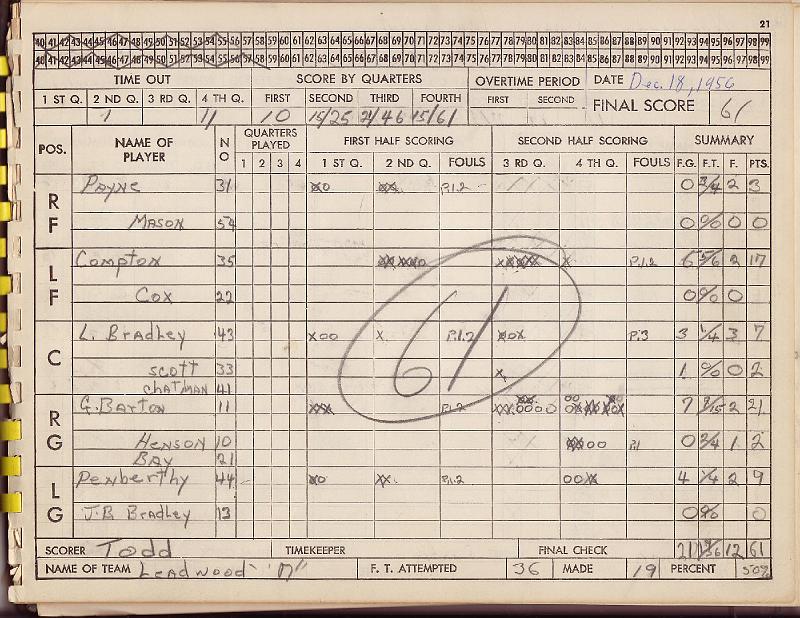 21
40 41 42 43 44 45 46 47 48 49 50 51 52 53 54 55 56 57 58 59 60 61 62 63 64 65 66 67 68 69 70 71 72 73 74 75 76 77 78 79 80 81 82 83 84 85 86 87 88 89 90 91 92 93 94 95 96 97 98 99
40 41 42 43 44 45 46 47 48 49 50 51 52 53 54 55 56 57 58 59 60 61 62 63 64 65 66 67 68 69 70 71 72 73 74 75 76 77 78 79 80 81 82 83 84 85 86 87 88 89 90 91 92 93 94 95 96 97 98 99
TIME OUT SCORE BY QUARTERS OVERTIME PERIOD DATE Dec. 18, 1956
1 ST Q. 2 ND Q. 3 RD Q. 4 TH Q. FIRST SECOND THIRD FOURTH FIRST SECOND FINAL SCORE 61
1 11 10 15/25 21/46 15/61
POS. NAME OF PLAYER NO QUARTERS PLAYED FIRST HALF SCORING SECOND HALF SCORING SUMMARY
1 2 3 4 1 ST Q. 2 ND Q. FOULS 3 RD Q. 4 TH Q. FOULS F.G. F.T. F. PTS.
RF Payne 31 P.1.2 0 3/4 2 3
Mason 54 0 0/0 0 0
LF Compton 35 P.1.2 6 5/6 2 17
Cox 22 0 0/0 0
C L. Bradley 43 xoo x P.1.2 P.3 3 1/4 3 7
Scott 33 x 1 0/0 0 2
Chatman 41
RG G. Barton 11 P.1.2 7 2 21
Henson 10 P.1 0 3/4 1 2
Bay 21
LG Penberthy 44 P.1.2 4 1/4 2 9
J.B. Bradley 13 0 0/0 0
61
SCORER Todd TIMEKEEPER FINAL CHECK 21 12 61
NAME OF TEAM Leadwood F. T. ATTEMPTED 36 MADE 19 PERCENT 50%